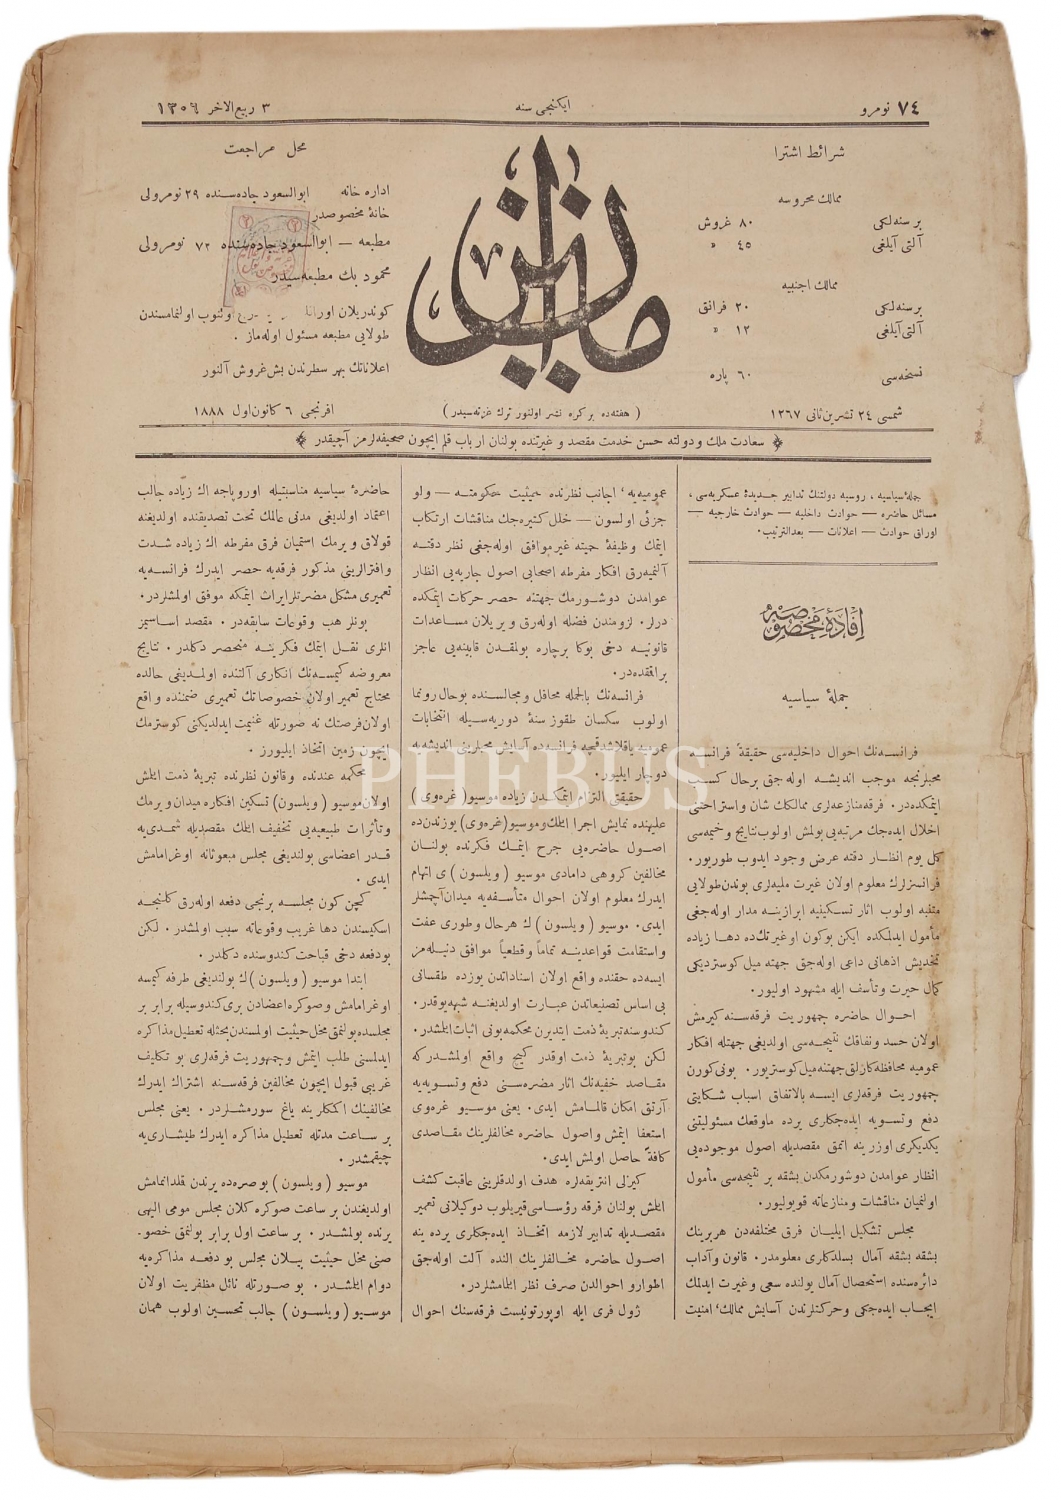 ٧٤ نومرو
ایکنجی سنه
٣ ربیع الاخر ١٣٠٦
شرائط اشترا
ممالك محروسه
بر سنه‌لکی ٨٠ غروش
آلتی آیلغی ٤٥ »
ممالك اجنبیه
بر سنه‌لکی ٢٠ فرانق
آلتی آیلغی ١٢ »
نسخه‌سی ٦٠ پاره
شمسی ٢٤ تشرین ثانی ١٢٦٧
میزان
( هفته‌ده بر کره نشر اولنور ترك غزته‌سیدر )
محل مراجعت
اداره خانه ابوالسعود جاده‌سنده ٢٩ نومرولی
خانهٔ مخصوصدر
مطبعه — ابوالسعود جاده‌سنده ٧٢ نومرولی
محمود بك مطبعه‌سیدر
کوندریلان اوراق درج اولنوب اولنمامسندن
طولایی مطبعه مسئول اوله‌ماز .
اعلاناتك بهر سطرندن بش غروش آلنور
افرنجی ٦ کانون اول ١٨٨٨
سعادت ملك و دولته حسن خدمت مقصد و غیرتنده بولنان ارباب قلم ایچون صحیفه‌لرمز آچیقدر
جملهٔ سیاسیه ، روسیه دولتنك تدابیر جدیدهٔ عسکریه‌سی ،
مسائل حاضره — حوادث داخلیه — حوادث خارجیه —
اوراق حوادث — اعلانات — بعدالترتیب .
افادهٔ مخصوصه
جملهٔ سیاسیه
فرانسه‌نك احوال داخلیه‌سی حقیقةً فرانسه
محبلرنجه موجب اندیشه اوله‌جق برحال کسب
ایتمکده‌در . فرقه منازعه‌لری ممالكك شان و استراحتنی
اخلال ایده‌جك مرتبه‌یی بولمش اولوب نتایج وخیمه‌سی
کل یوم انظار دقته عرض وجود ایدوب طوریور .
فرانسزلرك معلوم اولان غیرت ملیه‌لری بوندن طولایی
متنبه اولوب اثار تسکینیه ابرازینه مدار اوله‌جغی
مأمول ایدلمکده ایکن بوکون او غیرتك ده دها زیاده
تخدیش اذهانی داعی اوله‌جق جهته میل کوستردیکی
کمال حیرت و تأسف ایله مشهود اولیور .
احوال حاضره جمهوریت فرقه‌سنه کیرمش
اولان حسد و نفاقك نتیجه‌سی اولدیغی جهتله افکار
عمومیه محافظه‌کارلق جهتنه میل کوستریور . بونی کورن
جمهوریت فرقه‌لری ایسه بالاتفاق اسباب شکایتی
دفع و تسویه ایده‌جکلری یرده ماوقعك مسئولیتنی
یکدیکری اوزرینه آتمق مقصدیله اصول موجوده‌یی
انظار عوامدن دوشورمکدن بشقه بر نتیجه‌سی مأمول
اولنمیان مناقشات و منازعاته قویولیور .
مجلس تشکیل ایلیان فرق مختلفه‌دن هربرینك
بشقه بشقه آمال بسلدکلری معلومدر . قانون و آداب
دائره‌سنده استحصال آمال یولنده سعی و غیرت ایدلمك
ایجاب ایده‌جکی و حرکتلرندن آسایش ممالك ، امنیت
عمومیه یه ، اجانب نظرنده حیثیت حکومته — ولو
جزئی اولسون — خلل کتیره‌جك مناقشات ارتکاب
ایتمك وظیفهٔ حمیته غیر موافق اوله‌جغی نظر دقته
آلنمیه‌رق افکار مفرطه اصحابی اصول جاریه‌یی انظار
عوامدن دوشورمك جهتنه حصر حرکات ایتمکده
درلر . لزومندن فضله اوله‌رق ویریلان مساعدات
قانونیه دخی بوکا برچاره بولمقدن قابینه‌یی عاجز
براقمقده‌در .
فرانسه‌نك بالجمله محافل و مجالسنده بوحال رونما
اولوب سکسان طقوز سنهٔ دوریه‌سیله انتخابات
عمومیه یاقلاشدقجه فرانسه‌ده آسایش محبلرینی اندیشه‌یه
دوچار ایلیور .
حقیقتی التزام ایتمکدن زیاده موسیو (غره‌وی)
علیهنده نمایش اجرا ایتمك و موسیو (غره‌وی) یوزندن ده
اصول حاضره‌یی جرح ایتمك فکرنده بولنان
مخالفین کروهی دامادی موسیو (ویلسون) ی اتهام
ایدرك معلوم اولان احوال متأسفه‌یه میدان آچمشلر
ایدی . موسیو (ویلسون) ك هر حال و طوری عفت
و استقامت قواعدینه تماماً و قطعیاً موافق دنیله‌مز
ایسه‌ده حقنده واقع اولان اسناداتدن یوزده طقسانی
بی اساس تصنیعاتدن عبارت اولدیغنه شبهه یوقدر .
کندوسنه تبریهٔ ذمت ایتدیرن محکمه بونی اثبات ایتمشدر .
لکن بو تبریهٔ ذمت اوقدر کیج واقع اولمشدر که
مقاصد خفیه‌نك اثار مضره‌سنی دفع و تسویه‌یه
آرتق امکان قالمامش ایدی . یعنی موسیو غره‌وی
استعفا ایتمش و اصول حاضره مخالفلرینك مقاصدی
کافةً حاصل اولمش ایدی .
کیزلی انتریقه‌لره هدف اولدقلرینی عاقبت کشف
ایتمش بولنان فرقه رؤساسی قیریلوب دوکیلانی تعمیر
مقصدیله تدابیر لازمه اتخاذ ایده‌جکلری یرده ینه
اصول حاضره مخالفلرینك النده آلت اوله‌جق
اطوار و احوالدن صرف نظر ایتمامشلردر .
ژول فری ایله اوپورتونیست فرقه‌سنك احوال
حاضرهٔ سیاسیه مناسبتیله اوروپاجه اك زیاده جالب
اعتماد اولدیغی مدنی عالمك تحت تصدیقنده اولدیغنه
قولاق ویرمك استمیان فرق مفرطه اك زیاده شدت
و افترالرینی مذکور فرقه‌یه حصر ایدرك فرانسه‌یه
تعمیری مشکل مضرتلر ایراث ایتمکه موفق اولمشلردر .
بونلر هب وقوعات سابقه‌در . مقصد اساسیمز
انلری نقل ایتمك فکرینه منحصر دکلدر . نتایج
معروضه کیمسه‌نك انکاری آلتنده اولمدیغی حالده
محتاج تعمیر اولان خصوصاتك تعمیری ضمننده واقع
اولان فرصتك نه صورتله غنیمت ایدلدیکنی کوسترمك
ایچون زمین اتخاذ ایلیورز .
محکمه عندنده و قانون نظرنده تبریهٔ ذمت ایتمش
اولان موسیو (ویلسون) تسکین افکاره میدان ویرمك
و تأثرات طبیعیه‌یی تخفیف ایتمك مقصدیله شمدی‌یه
قدر اعضاسی بولندیغی مجلس مبعوثانه اوغرامامش
ایدی .
کچن کون مجلسه برنجی دفعه اوله‌رق کلنجه
اسکیسندن دها غریب وقوعاته سبب اولمشدر . لکن
بودفعه دخی قباحت کندوسنده دکلدر .
ابتدا موسیو (ویلسون) ك بولندیغی طرفه کیمسه
اوغرامامش و صوکره اعضادن بری کندوسیله برابر بر
مجلسده بولنمق مخل حیثیت اولمسندن بحثله تعطیل مذاکره
ایدلمسنی طلب ایتمش و جمهوریت فرقه‌لری بو تکلیف
غریبی قبول ایچون مخالفین فرقه‌سنه اشتراك ایدرك
مخالفینك اکمکلرینه یاغ سورمشلردر . یعنی مجلس
بر ساعت مدتله تعطیل مذاکره ایدرك طیشاری‌یه
چیقمشدر .
موسیو (ویلسون) بوصره‌ده یرندن قلدانمامش
اولدیغندن بر ساعت صوکره کلان مجلس مومی الیهی
یرنده بولمشدر . بر ساعت اول برابر بولنمق خصو-
صنی مخل حیثیت بیلان مجلس بو دفعه مذاکره‌یه
دوام ایتمشدر . بو صورتله نائل مظفریت اولان
موسیو (ویلسون) جالب تحسین اولوب همان
PHEBUS